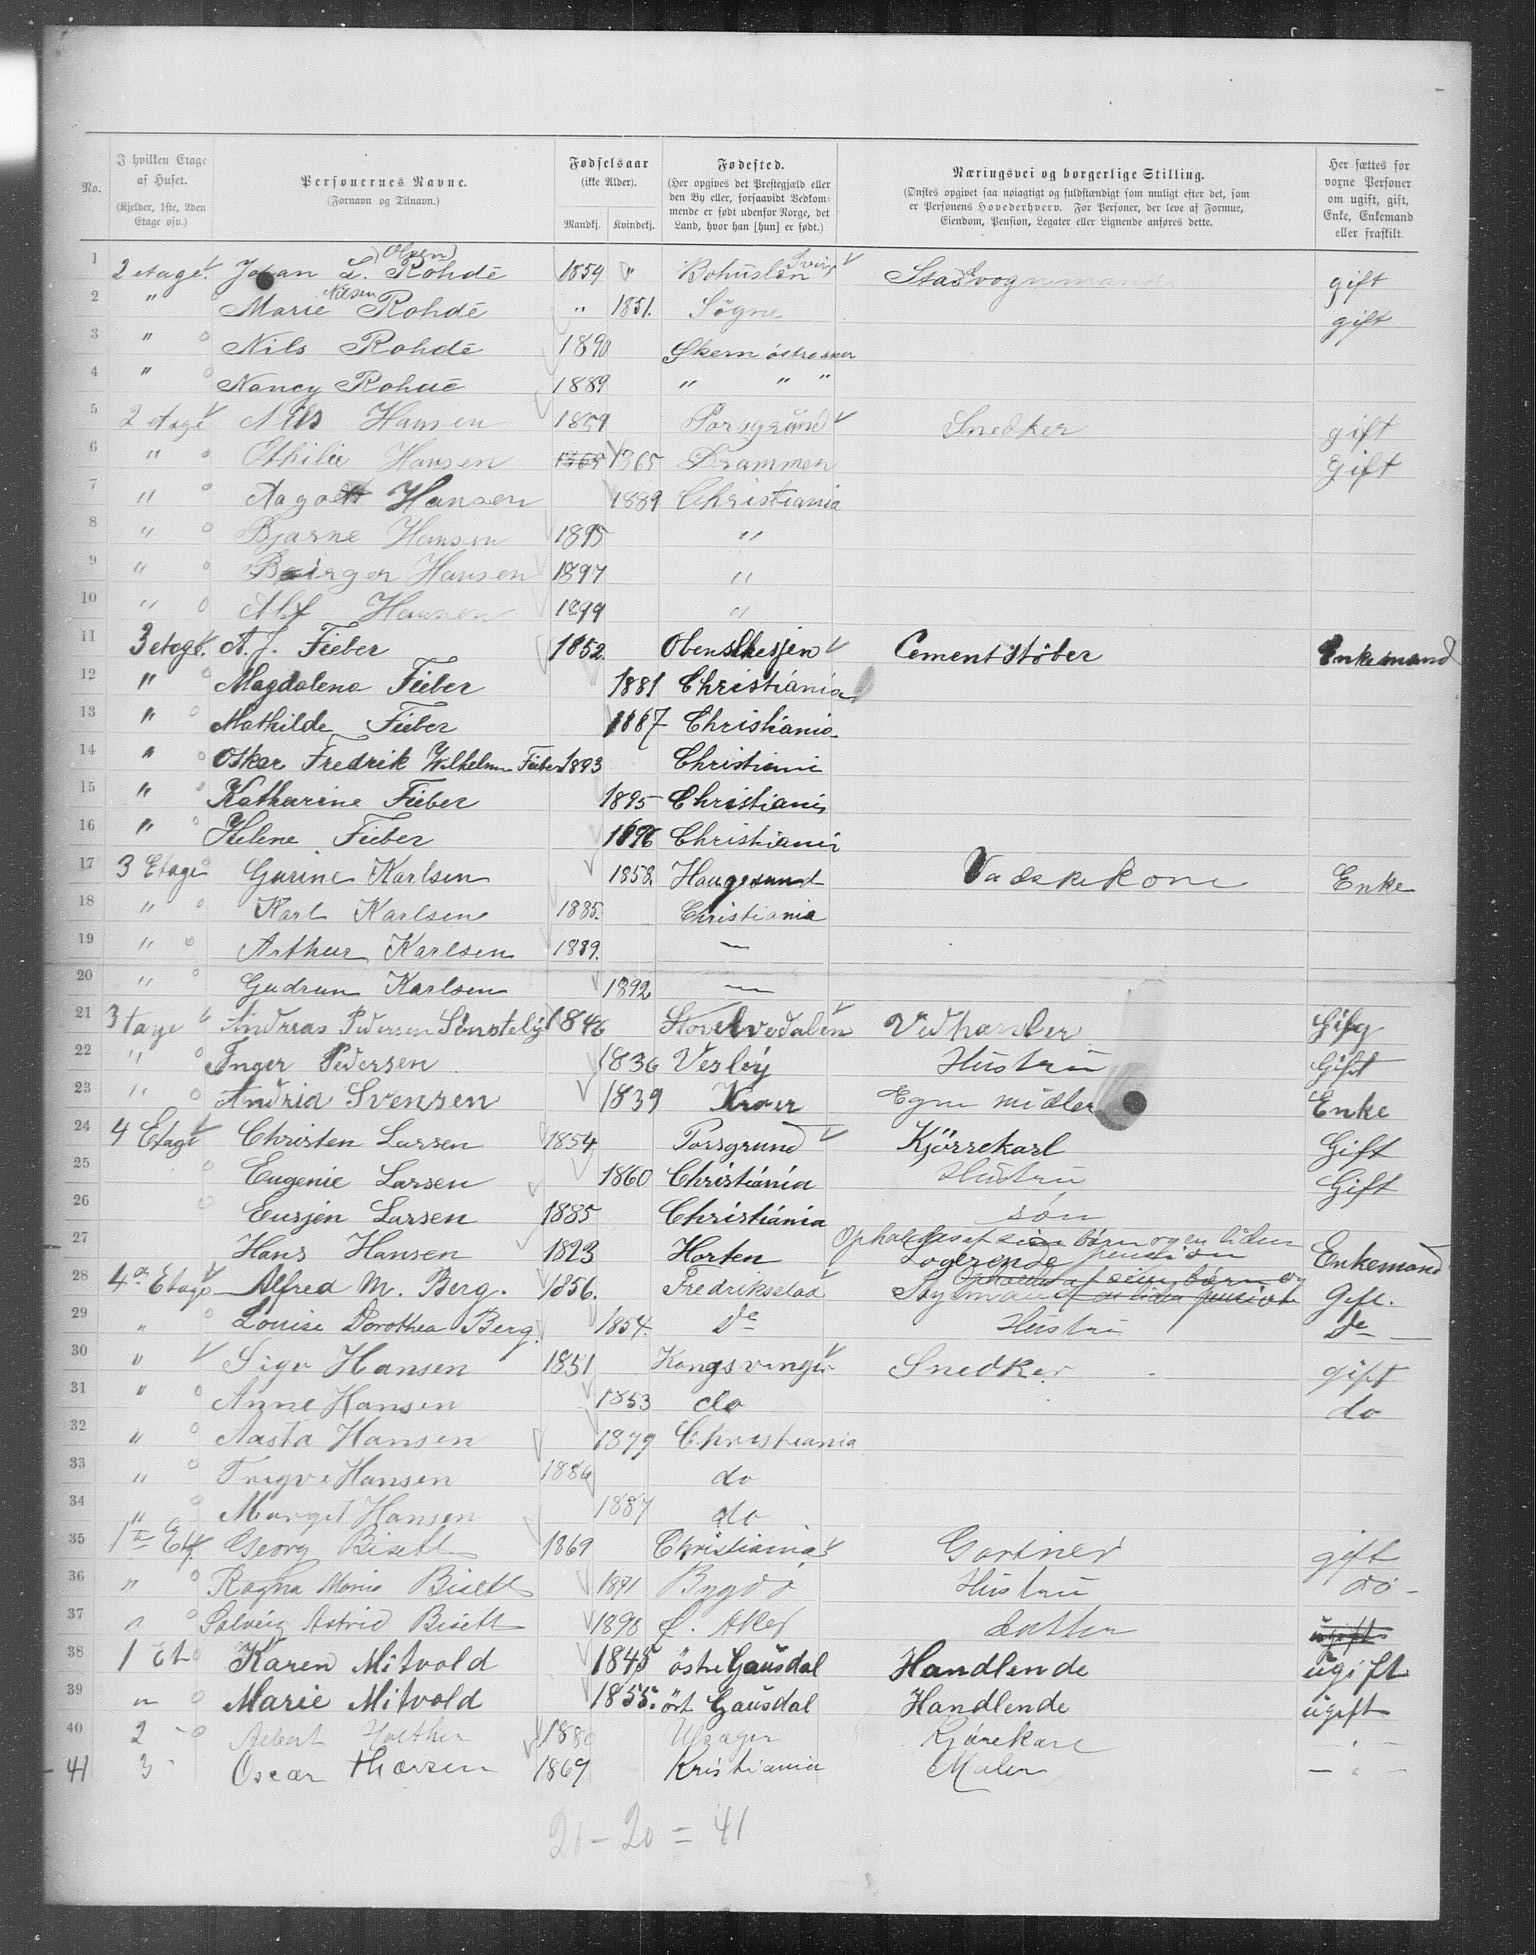 No.
I hvilken Etage af Huset. (Kjelder, 1ste, 2den Etage osv.)
Personernes Navne. (Fornavn og Tilnavn.)
Fødselsaar (ikke Alder). Mandkj. Kvindekj.
Fødested. (Her opgives det Prestegjæld eller den By eller, forsaavidt Vedkommende er født udenfor Norge, det Land, hvor han [hun] er født.)
Næringsvei og borgerlige Stilling. (Ønskes opgivet saa nøiagtigt og fuldstændigt som muligt efter det, som er Personens Hovederhverv. For Personer, der leve af Formue, Eiendom, Pension, Legater eller Lignende anføres dette.
Her sættes for voxne Personer om ugift, gift, Enke, Enkemand eller fraskilt.
1 2 etage. Johan L. (Olsen) Rohde 1854 " Bohuslen Sverig Stadsvognmand gift
2 " Marie Nilsen Rohde " 1851. Sögne gift
3 " Nils Rohde 1890 Skern østre
4 " Nancy Rohde 1889 " " "
5 2 etage Nils Hansen 1859 Porsgrund Snedker gift
6 " Othilie Hansen 1865 1865 Drammen Gift
7 " Aagott Hansen 1889 Christiania
8 " Bjarne Hansen 1895 "
9 " Birger Hansen 1897 "
10 " Alf Hansen 1899 "
11 3 etage. A. J. Fieber 1852. Obenslhesjen Cementstøber Enkemand
12 " Magdalena Fieber 1881 Christiania
13 " Mathilde Fieber 1887 Christiania
14 " Oskar Fredrik Wilhelm Fieber 1893 Christiani
15 " Katharine Fieber 1895 Christiania
16 " Helene Fieber 1896 Christiania
17 3 Etage Gurine Karlsen 1858. Haugesund Vadskekone Enke
18 " Karl Karlsen 1885. Christiania
19 " Arthur Karlsen 1889. —
20 " Gudrun Karlsen 1892 —
21 3 tage Andreas Pedersen Sönsteby 1846 Stovelvedalen Vedhandler Gift
22 " Inger Pedersen 1836 Vesby Hustru Gift
23 " Andria Svensen 1839 Kroer Egne midler Enke
24 4 Etage Christen Larsen 1854 Porsgrund Kjörrekarl Gift
25 Eugenie Larsen 1860 Christiania Hustru Gift
26 Eusjen Larsen 1885 Christiania sön
27 Hans Hansen 1823 Horten Logerende Opholdes af sine börn og en liden pension Enkemand
28 4de Etage Alfred M. Berg. 1856. Fredriksstad Gift.
29 " Louise Dorothea Berg. 1854. De Hustru De —
30 " Sigv Hansen 1851 Kongsvinger Snedker gift
31 " Anne Hansen 1853 do do
32 " Aasta Hansen 1879 Christiania
33 " Trigve Hansen 1886 do
34 " Margit Hansen 1887 do
35 1ste Etg. Georg Bisett 1869 Christiania Gartner gift
36 " Ragna Marie Bisett 1871 Bygdö Hustru do -
37 " Solveig Astrid Bisett 1890 V. Aker datter ugift
38 1 Et Karen Mitvold 1845 östre Gausdal Handlende ugift
39 " Marie Mitvold 1855. öst Gausdal Handlende ugift
40 2 - Albert Holther 1880 Ullager Kjörekarl — " —
41 3 - Oscar Thorsen 1869 Kristiania Maler — " —
21 - 20 = 41